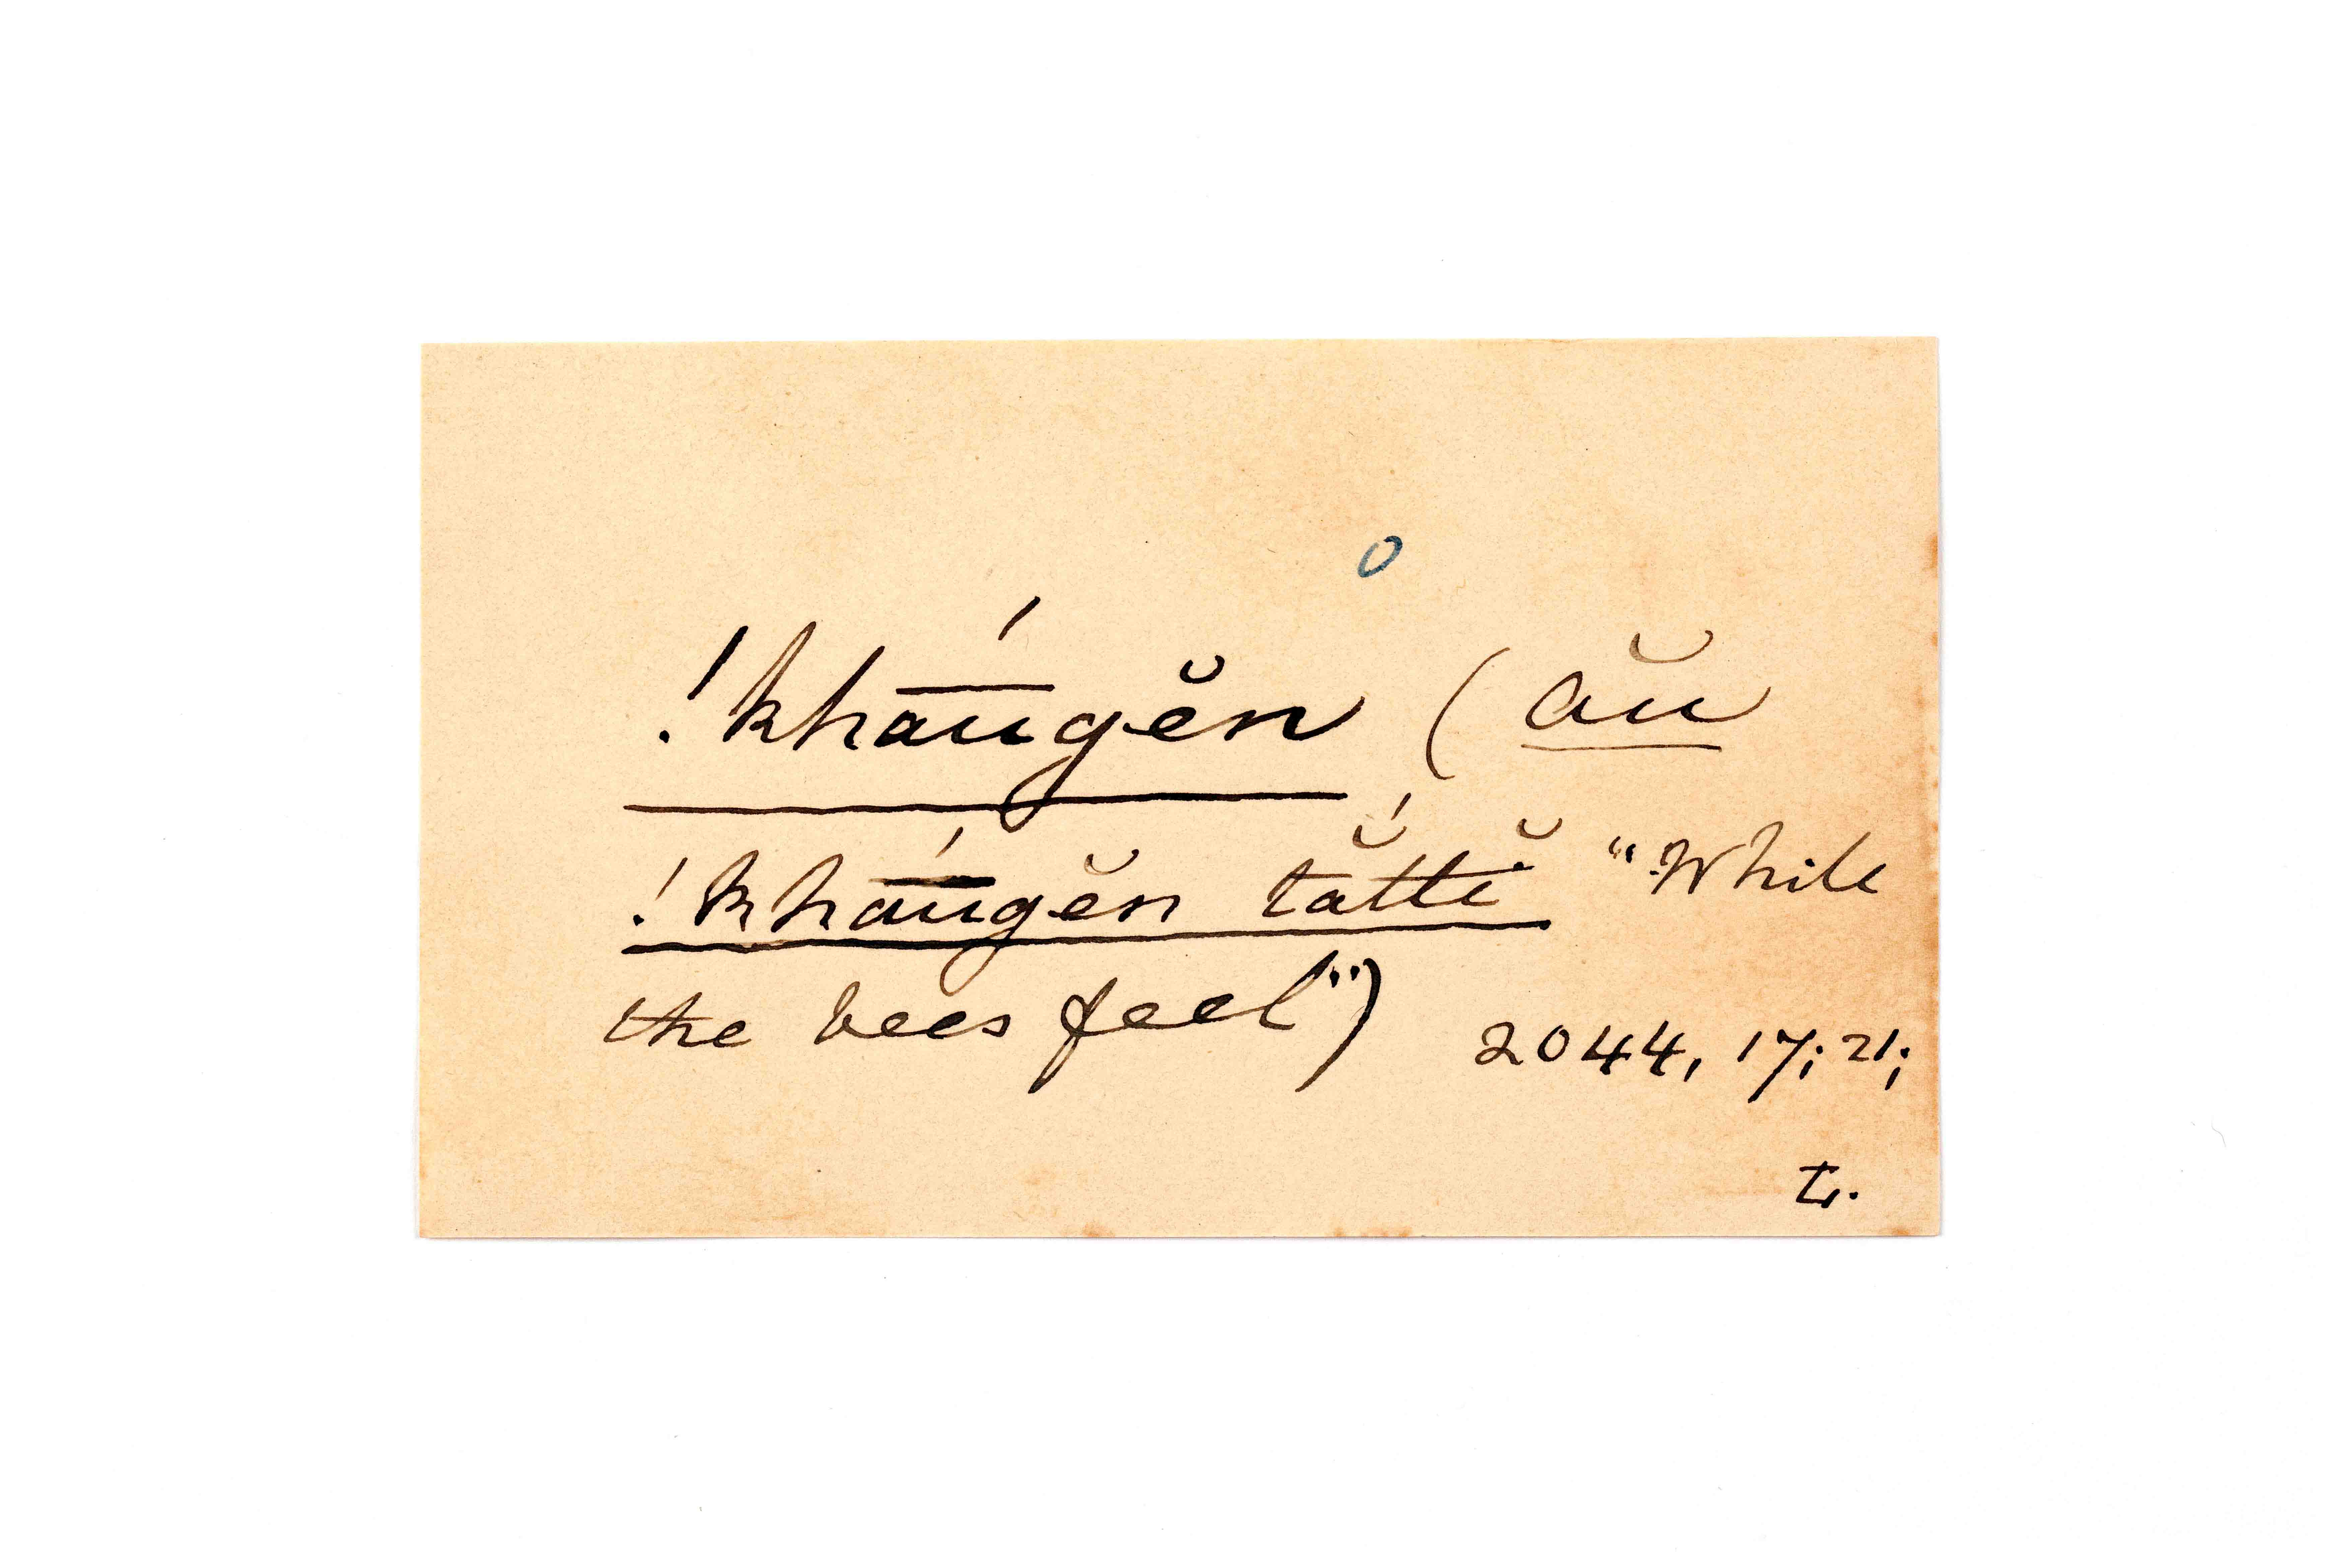 o
!kha͞úgĕn (ău
!kha͞úgĕn tắttĭ "While
the bees feel")
2044, 17; 21;
L.